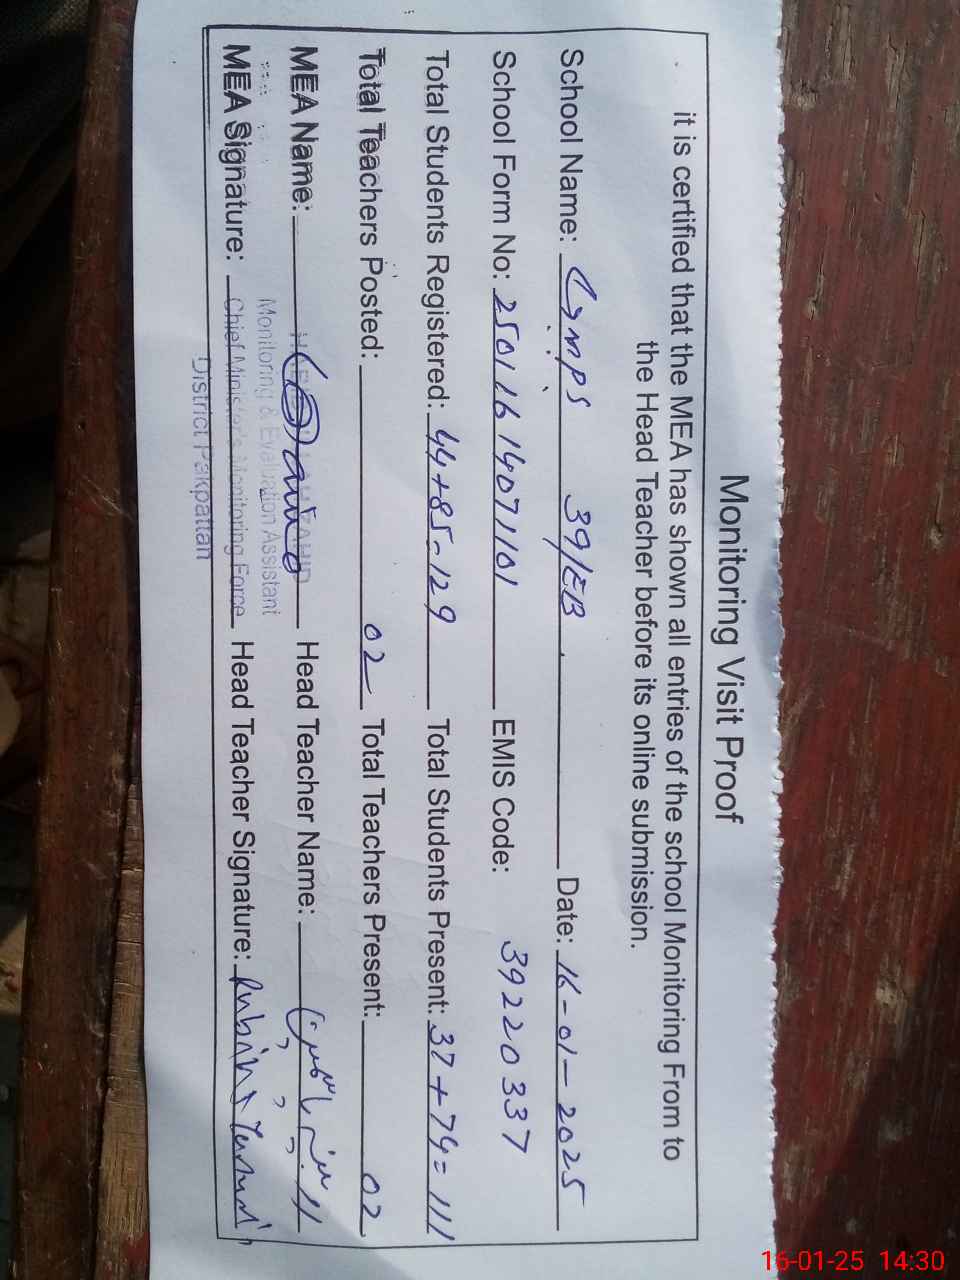 Monitoring Visit Proof
it is certified that the MEA has shown all entries of the school Monitoring From to
the Head Teacher before its online submission.
School Name: GMPS 39/EB Date: 16-01-2025
School Form No: 25011614071101 EMIS Code: 39220337
Total Students Registered: 44+85-129 Total Students Present: 37+74=111
Total Teachers Posted: 02 Total Teachers Present: 02
MEA Name: Head Teacher Name:
Monitoring & Evaluation Assistant
MEA Signature: Chief Minister's Monitoring Force Head Teacher Signature:
District Pakpattan
16-01-25 14:30